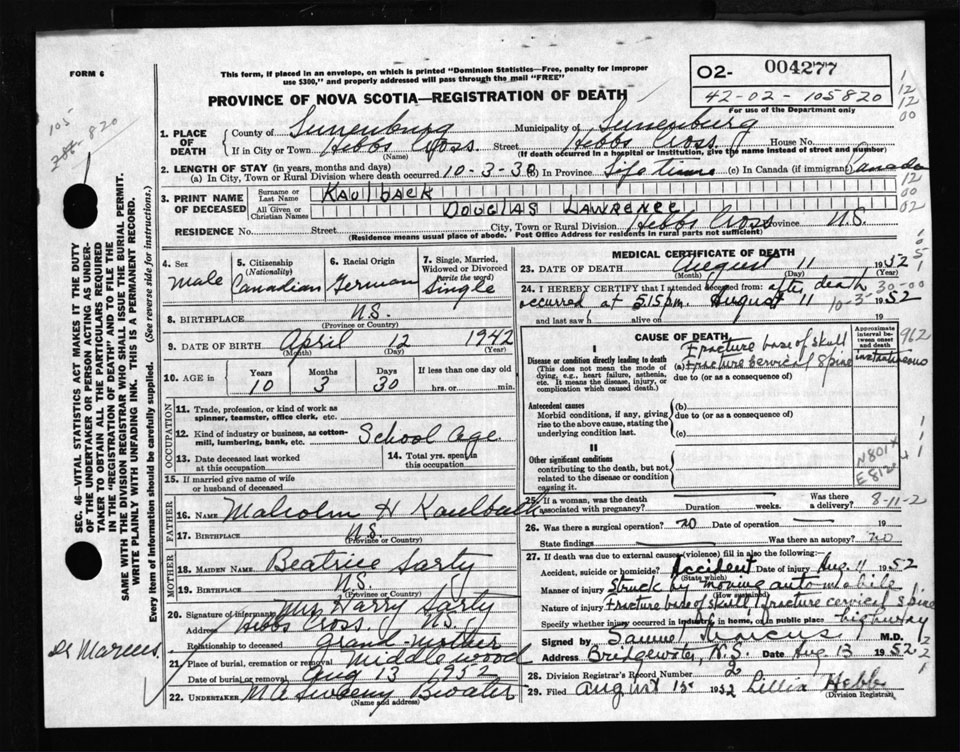 FORM 6
This form, if placed in an envelope, on which is printed "Dominion Statistics—Free, penalty for improper
use $300," and properly addressed will pass through the mail "FREE"
PROVINCE OF NOVA SCOTIA—REGISTRATION OF DEATH
02- 004277
42-02-105820
For use of the Department only
105
820
1. PLACE OF DEATH
County of Lunenburg Municipality of Lunenburg
If in City or Town Hebbs Cross Street Hebbs Cross House No.
(Name) (If death occurred in a hospital or institution, give the name instead of street and number)
2. LENGTH OF STAY (in years, months and days)
(a) In City, Town or Rural Division where death occurred 10-3-30 (b) In Province Life time (c) In Canada (if immigrant) Canada
3. PRINT NAME OF DECEASED
Surname or Last Name KAULBACK
All Given or Christian Names DOUGLAS LAWRENCE
RESIDENCE No. Street City, Town or Rural Division Hebbs Cross Province N.S.
(Residence means usual place of abode. Post Office Address for residents in rural parts not sufficient)
4. Sex
Male
5. Citizenship (Nationality)
Canadian
6. Racial Origin
German
7. Single, Married, Widowed or Divorced (write the word)
Single
8. BIRTHPLACE N.S.
(Province or Country)
9. DATE OF BIRTH April 12 1942
(Month) (Day) (Year)
10. AGE in Years Months Days If less than one day
10 3 30 hrs. or min.
OCCUPATION
11. Trade, profession, or kind of work as
spinner, teamster, office clerk, etc.
12. Kind of industry or business, as cotton-
mill, lumbering, bank, etc. School Age
13. Date deceased last worked
at this occupation
14. Total yrs. spent in
this occupation
15. If married give name of wife
or husband of deceased
FATHER
16. NAME Malcolm H Kaulback
17. BIRTHPLACE N.S.
(Province or Country)
MOTHER
18. MAIDEN NAME Beatrice Sarty
19. BIRTHPLACE N.S.
(Province or Country)
20. Signature of informant Mrs Harry Sarty
Address Hebbs Cross. N.S.
Relationship to deceased grand mother
21. Place of burial, cremation or removal Middlewood
Date of burial or removal Aug 13 1952
22. UNDERTAKER Bwater
(Name and address)
Dr Marcus
MEDICAL CERTIFICATE OF DEATH
23. DATE OF DEATH August 11 1952
(Month) (Day) (Year)
24. I HEREBY CERTIFY that I attended deceased from: after death
occurred at 515 pm. August 11 1952
30-00
10-3-
and last saw h alive on 19
CAUSE OF DEATH
Approximate interval between onset and death
I
Disease or condition directly leading to death
(This does not mean the mode of
dying, e.g., heart failure, asthenia,
etc. It means the disease, injury, or
complication which caused death.)
Fracture base of skull
(a) Fracture cervical spine instantaneous
due to (or as a consequence of)
962
Antecedent causes
Morbid conditions, if any, giving
rise to the above cause, stating the
underlying condition last.
(b)
due to (or as a consequence of)
(c)
II
Other significant conditions
contributing to the death, but not
related to the disease or condition
causing it.
N801
E812
25. If a woman, was the death
associated with pregnancy? Duration weeks. Was there
a delivery?
8-11-2
26. Was there a surgical operation? no Date of operation 19
State findings Was there an autopsy? no
27. If death was due to external causes (violence) fill in also the following:
Accident, suicide or homicide? Accident Date of injury Aug. 11 1952
(State which)
Manner of injury Struck by moving automobile
(How sustained)
Nature of injury Fracture base of skull, fracture cervical spine
Specify whether injury occurred in industry, in home, or in public place highway
Signed by Samuel Marcus M.D.
Address Bridgewater, N.S. Date Aug 13 1952
28. Division Registrar's Record Number 2
29. Filed August 15 1952 Lillia Hebb
(Division Registrar)
SEC. 46—VITAL STATISTICS ACT MAKES IT THE DUTY
OF THE UNDERTAKER OR PERSON ACTING AS UNDER-
TAKER TO OBTAIN ALL THE PARTICULARS REQUIRED
IN THE "REGISTRATION OF DEATH" AND TO FILE THE
SAME WITH THE DIVISION REGISTRAR WHO SHALL ISSUE THE BURIAL PERMIT.
WRITE PLAINLY WITH UNFADING INK. THIS IS A PERMANENT RECORD.
Every item of Information should be carefully supplied. (See reverse side for instructions.)